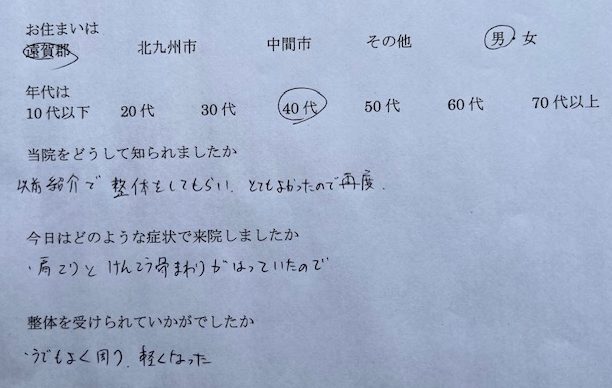 お住まいは
遠賀郡 北九州市 中間市 その他 男・女
年代は
10代以下 20代 30代 40代 50代 60代 70代以上
当院をどうして知られましたか
以前紹介で整体をしてもらい、とてもよかったので再度、
今日はどのような症状で来院しましたか
・肩こりとけんこう骨まわりがはっていたので
整体を受けられていかがでしたか
・うでもよく回り、軽くなった